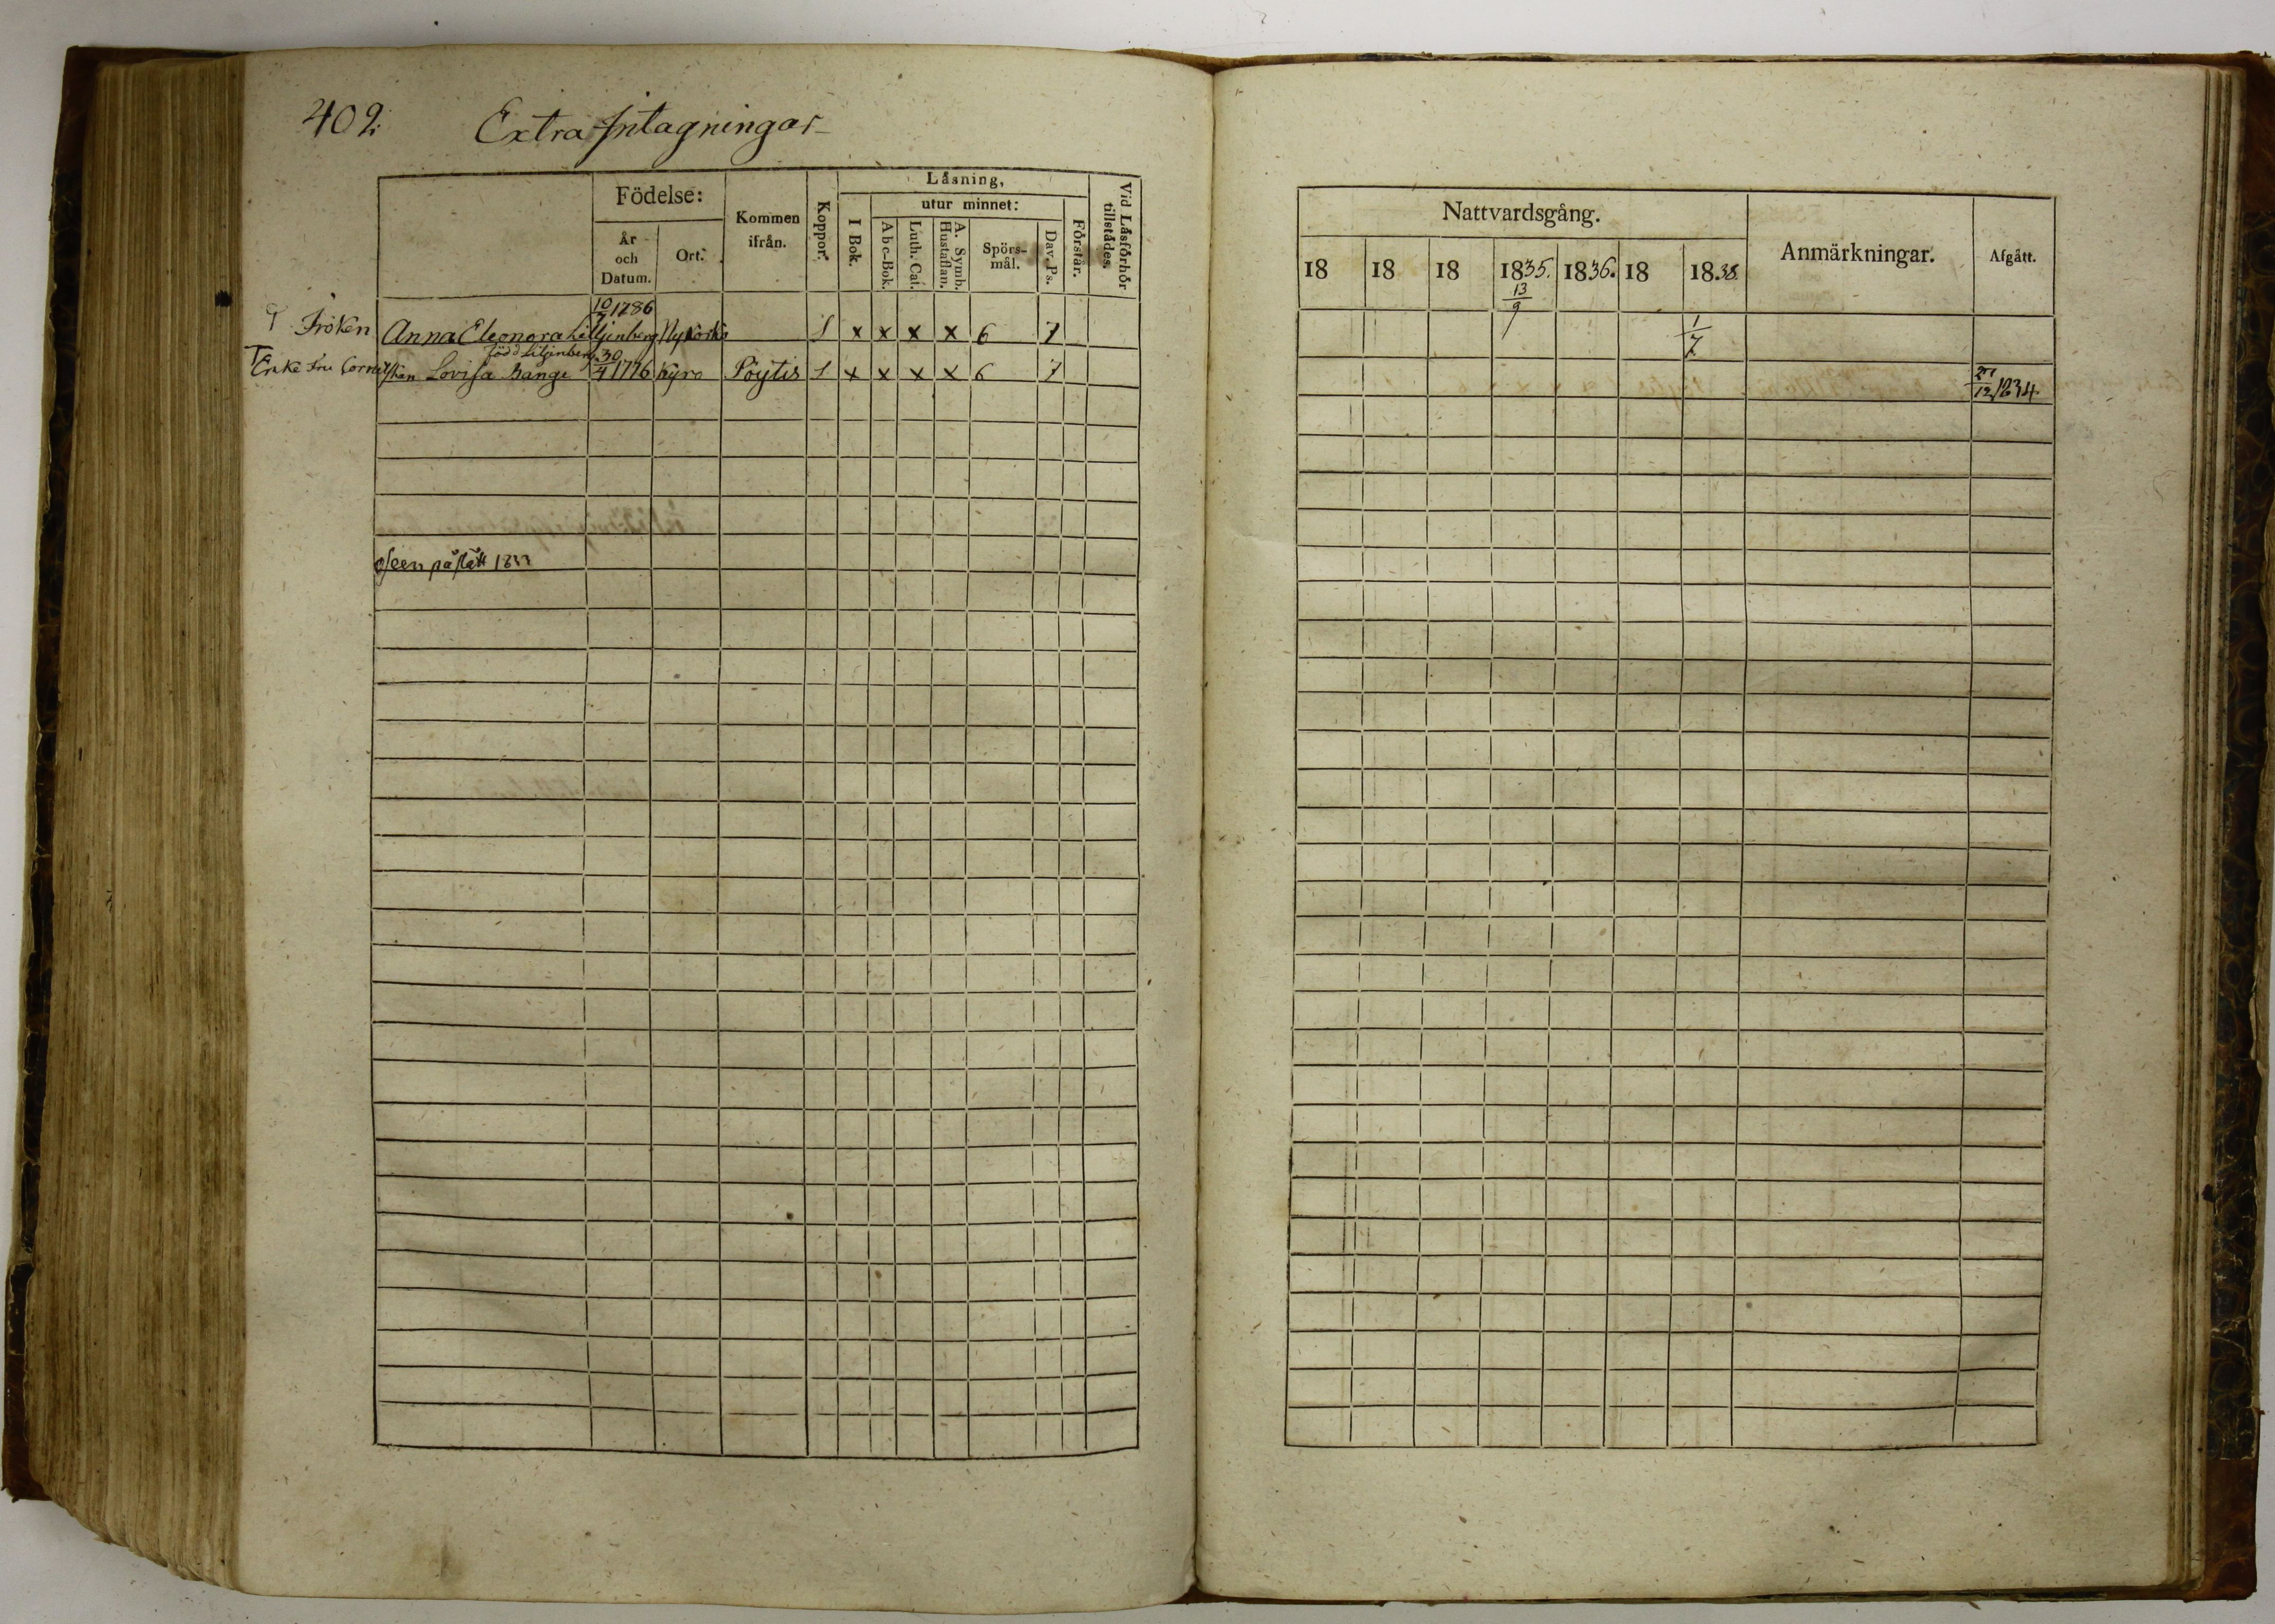 402.
Extra Intagningar
Födelse: Kommen ifrån. Koppor. Läsning, Vid Läsförhör tillstädes.
utur minnet:
År och Datum. Ort. I Bok. Abc-Bok. Luth. Cat. A. Symb. Hustaflan. Spörsmål. Dav. Ps. Förstår.
Fröken Anna Eleonora Liljenberg 10/7 1786 Nykörko 1 x x x x 6 7
född Liljenberg
Enke Fru Lovisa Bange 30/4 1776 Kyro Pöytis 1 x x x x 6 7
påstått
Nattvardsgång. Anmärkningar. Afgått.
18 18 18 1835. 1836. 18 18.38.
13/9 1/7
1834